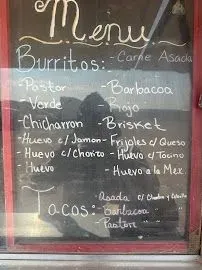 Menu
Burritos: - Carne Asada
- Pastor - Barbacoa
- Verde - Rojo
- Chicharron - Brisket
- Huevo c/Jamon - Frijoles c/Queso
- Huevo c/Chorizo - Huevo c/Tocino
- Huevo - Huevo a la Mex.
Tacos: - Asada c/
- Barbacoa "
- Pastor " "